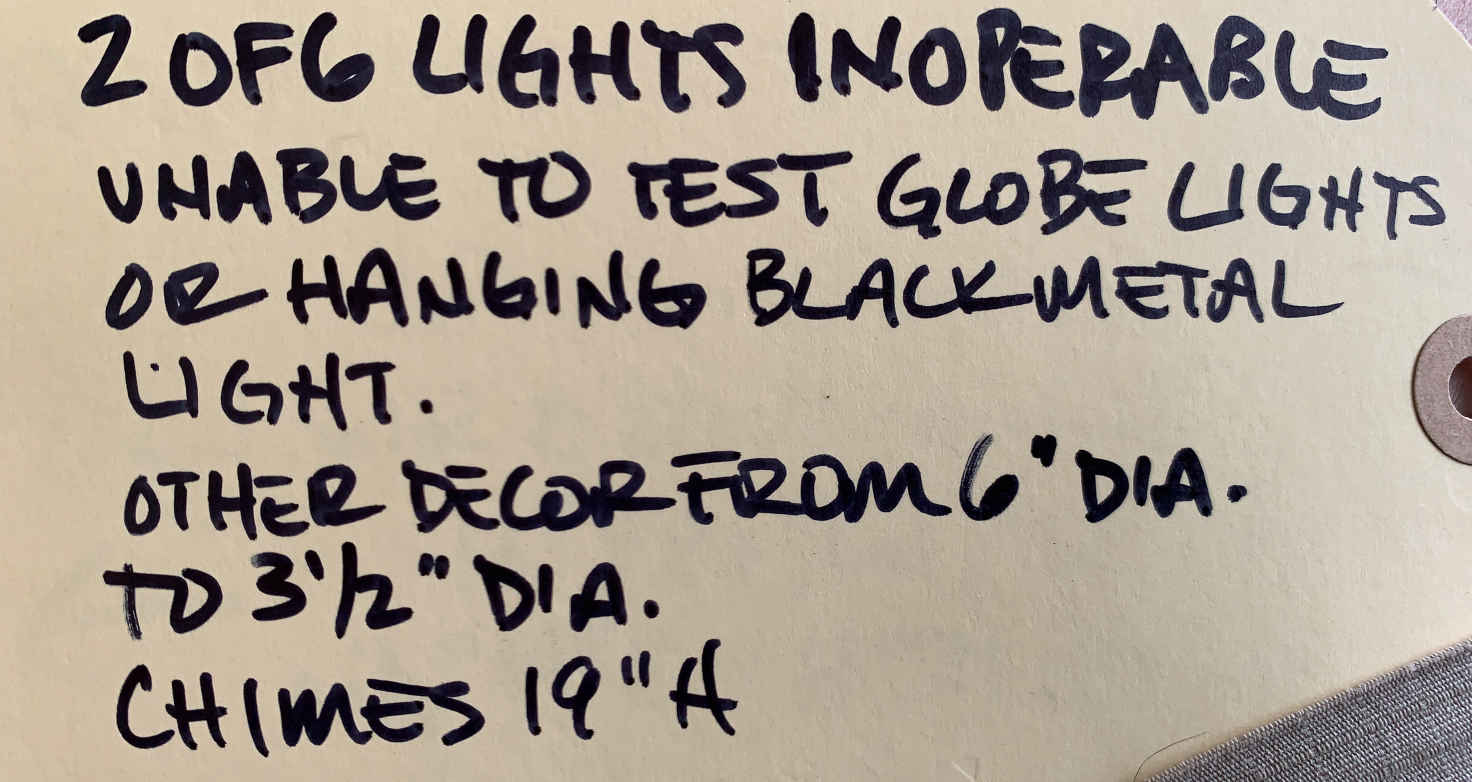 2 OF 6 LIGHTS INOPERABLE
UNABLE TO TEST GLOBE LIGHTS
OR HANGING BLACK METAL
LIGHT.
OTHER DECOR FROM 6" DIA.
TO 3 1/2" DIA.
CHIMES 19" H